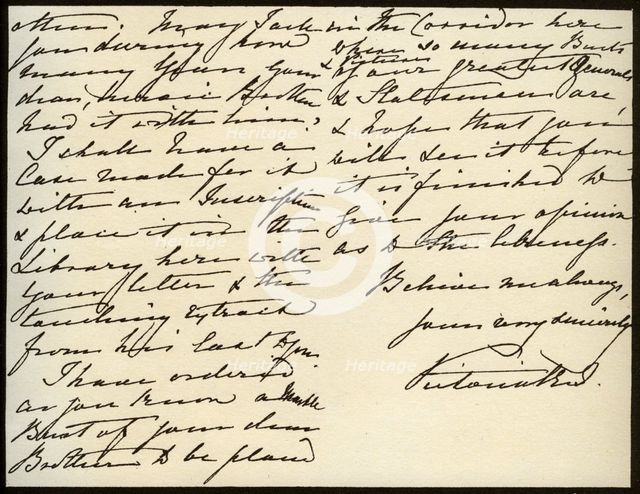 others. May I ask
you during how
many years your
dear, heroic Brother
had it with him?
I shall have a
Case made for it
with an Inscription
& place it in the
Library here with
your letter & the
touching extract
from his last to you.
I have ordered
as you know a Marble
Bust of your dear
Brother to be placed
in the Corridor here
where so many Busts
& Pictures of our greatest Generals
& Statesmen are,
& hope that you
will see it before
it is finished to
give your opinion
as to the likeness.
Believe me always,
yours very sincerely
Victoria R.I.
Heritage
Heritage
Heritage
Heritage
Heritage
Heritage